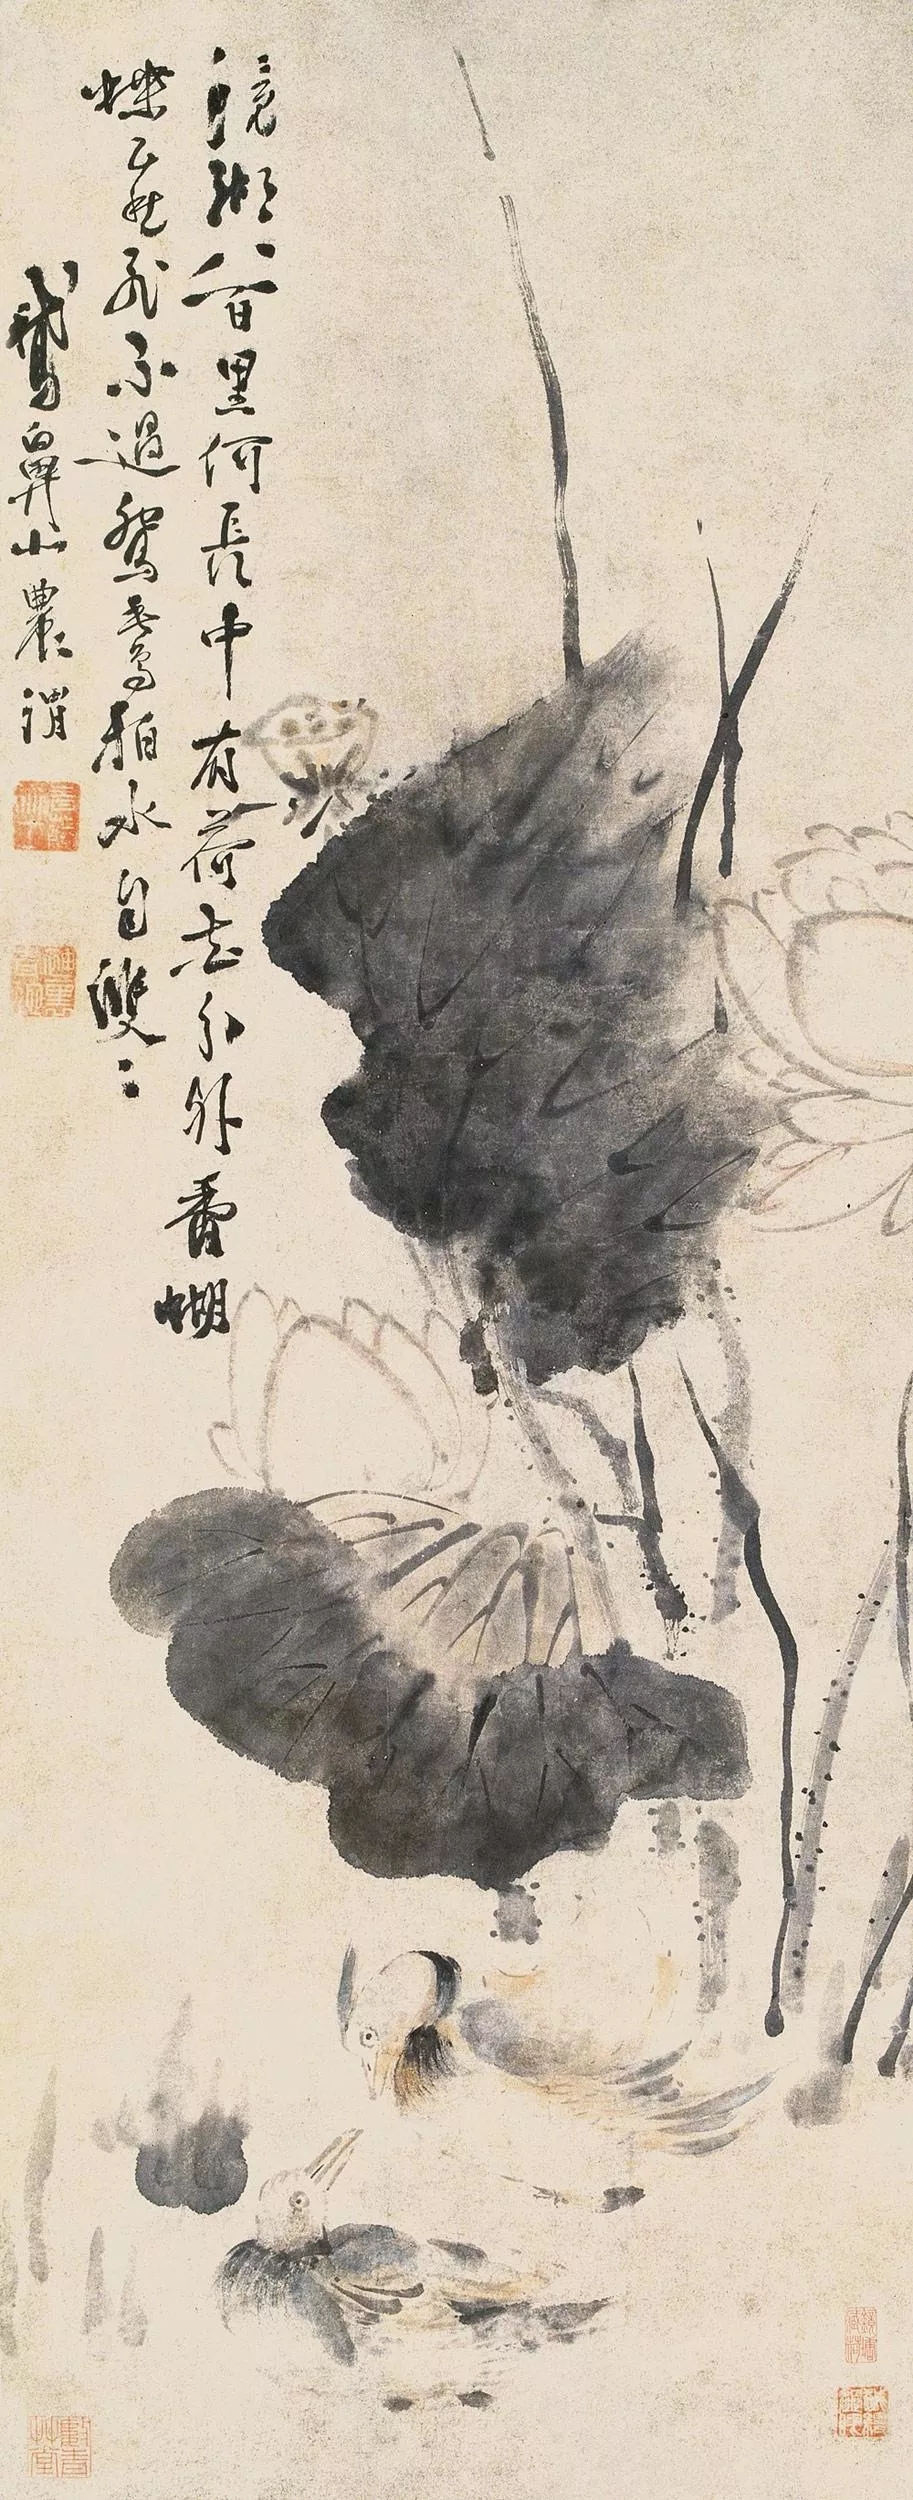 鏡湖八百里何長中有荷花分外香蝴
蝶正愁飛不過鴛鴦拍水自雙〻
鵝鼻山農渭